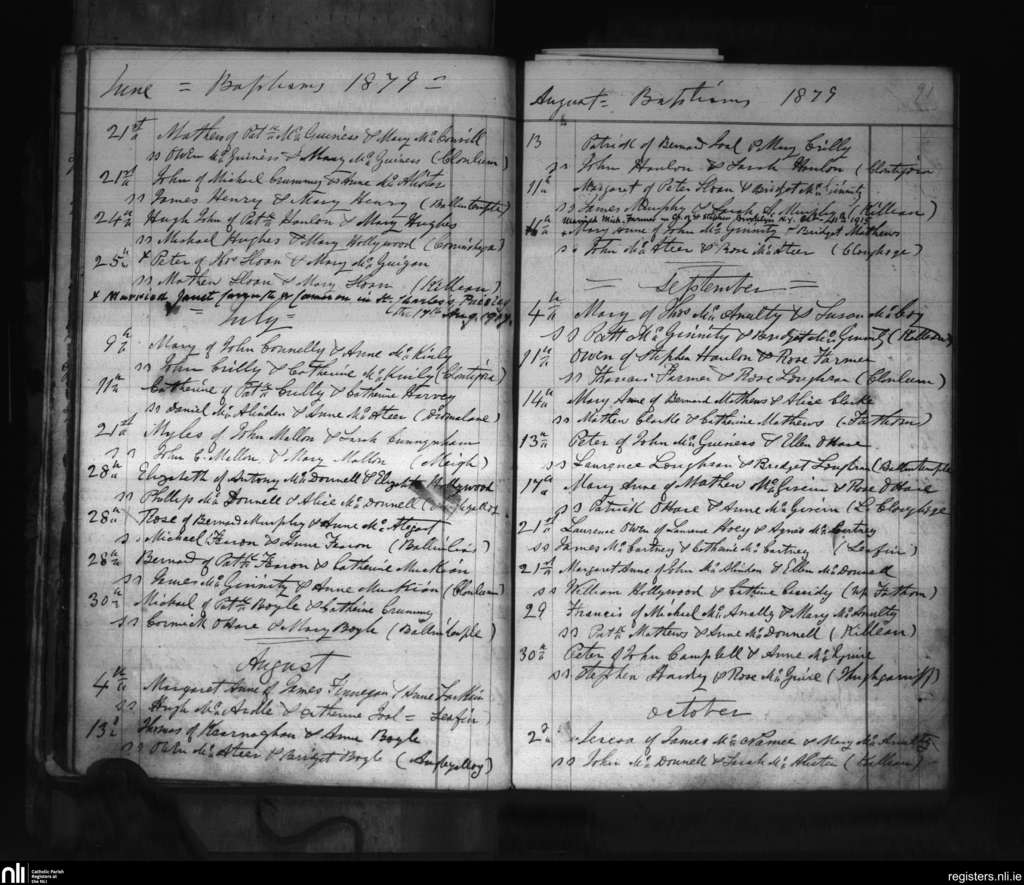 June = Baptisms 1879 =
21st Mathew of Patk McGuiness & Mary McConvill
ss Owen McGuiness & Mary McGuiness (Clonlum)
21st John of Michael Crummy & Anne McAlister
ss James Henry & Mary Henry (Ballintemple)
24th Hugh John of Patk Hanlon & Mary Hughes
ss Michael Hughes & Mary Hollywood
25th + Peter of Hor Sloan & Mary McGuigan
ss Mathew Sloan & Mary Sloan (Killean)
+ Married Janet in St. Charles's
the 17th Aug. 1909.
= July =
9th Mary of John Connelly & Anne McKinly
ss John Crilly & Catherine McKinly (Clontigora)
11th Catherine of Patk Crilly & Catherine Harvey
ss Daniel McAlinden & Anne McAteer (Dromalane)
21st Myles of John Mallon & Sarah Cunnynham
ss John C. Mallon & Mary Mallon (Meigh)
28th Elizabeth of Antony McDonnell & Elizabeth Hollywood
ss Phillip McDonnell & Alice McDonnell
28th Rose of Bernard Murphy & Anne McAteer
s Michael Fearon & Anne Fearon (Ballinliss)
28th Bernard of Patk Fearon & Catherine Murtian
ss James McGinnity & Anne Murtian (Clonlum)
30th Michael of Patk Boyle & Catherine Crummy
ss Cormick O'Hare & Mary Boyle (Ballintemple)
August
4th Margaret Anne of James Finnegan & Anne Larkin
ss Hugh McArdle & Catherine Loal = Leafin
13th Thomas of Kearnaghan & Anne Boyle
ss Owen McAteer & Bridget Boyle
August = Baptisms 1879
91
13 Patrick of Bernard Loal & Mary Crilly
ss John Hanlon & Sarah Hanlon (Clontigora
11th Margaret of Peter Sloan & Bridget McGinnity
ss James Murphy & Sarah A. Murphy (Killean)
Married Mich. Farrel in Ch. of St Stephen Brooklyn N.Y. Oct. 1915
16th + Mary Anne of John McGinnity & Bridget Mathews
ss John McAteer & Rose McAteer (Cloughoge)
= September =
4th Mary of Thos McAnulty & Susan McCoy
ss Patt McGinnity & Bridget McGinnity (Killean)
11th Owen of Stephen Hanlon & Rose Farmer
ss Francis Farmer & Rose Loughran (Clonlum)
14th Mary Anne of Bernard Mathews & Alice Clarke
ss Mathew Clarke & Catherine Mathews (Fathom)
13th Peter of John McGuiness & Ellen O'Hare
ss Laurence Loughran & Bridget Loughran (Ballintemple
17th Mary Anne of Mathew McGivern & Rose O'Hare
ss Patrick O'Hare & Anne McGivern (L. Cloughoge
21st Laurence Owen of Laurence Hoey & Agnes McCartney
ss James McCartney & Catharine McCartney (Leafin)
21st Margaret Anne of John McAlinden & Ellen McDonnell
ss William Hollywood & Catherine Cassidy (Up Fathom)
29 Francis of Michael McAnulty & Mary McAnulty
ss Patk Mathews & Anne McDonnell (Killean)
30th Peter of John Campbell & Anne McGuire
ss Stephen Sharkey & Rose McGuire
October
2d Teresa of James McNamee & Mary McAnulty
ss John McDonnell & Sarah McAlister (Killean)
nli
Catholic Parish
Registers at
the NLI
registers.nli.ie